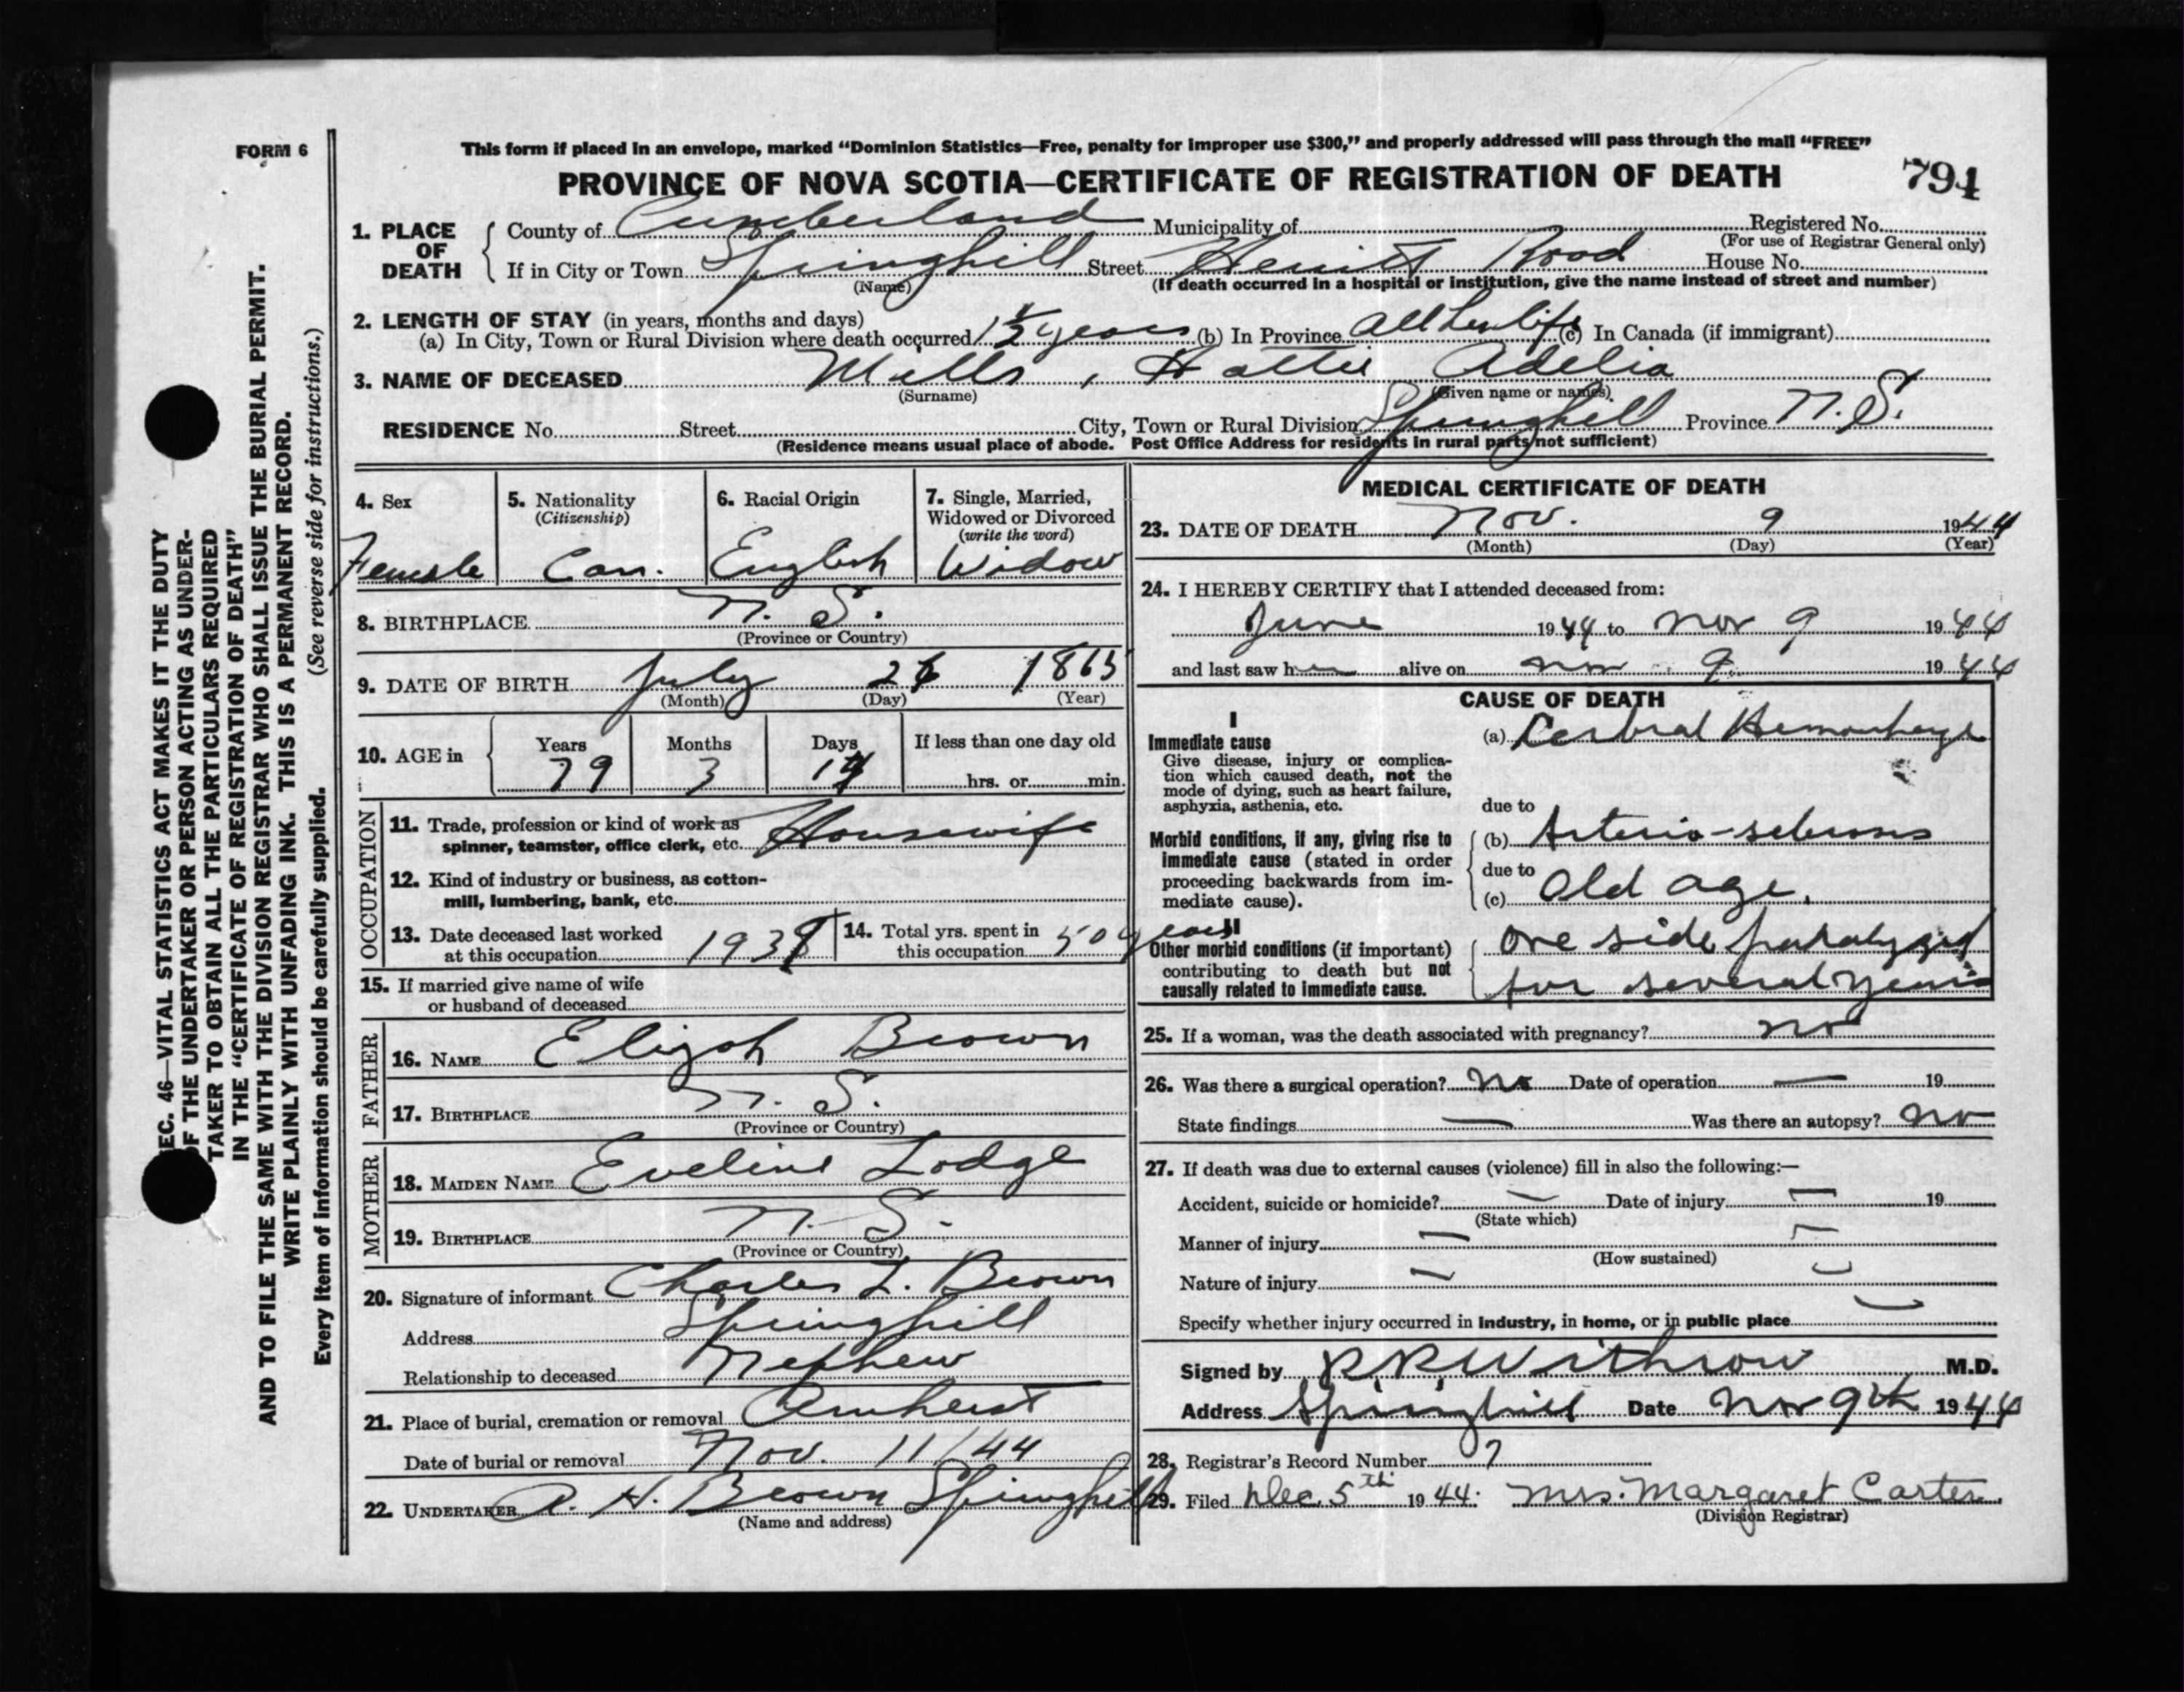 FORM 6
This form if placed in an envelope, marked “Dominion Statistics—Free, penalty for improper use $300,” and properly addressed will pass through the mail “FREE”
PROVINCE OF NOVA SCOTIA—CERTIFICATE OF REGISTRATION OF DEATH
794
1. PLACE OF DEATH
County of Cumberland Municipality of Registered No.
(For use of Registrar General only)
If in City or Town Springhill Street Road House No.
(Name) (If death occurred in a hospital or institution, give the name instead of street and number)
2. LENGTH OF STAY (in years, months and days)
(a) In City, Town or Rural Division where death occurred 1½ years (b) In Province All her life (c) In Canada (if immigrant)
3. NAME OF DECEASED Mills, Hattie Adelia
(Surname) (Given name or names)
RESIDENCE No. Street City, Town or Rural Division Springhill Province N. S.
(Residence means usual place of abode. Post Office Address for residents in rural parts not sufficient)
4. Sex
Female
5. Nationality
(Citizenship)
Can.
6. Racial Origin
English
7. Single, Married,
Widowed or Divorced
(write the word)
Widow
8. BIRTHPLACE N. S.
(Province or Country)
9. DATE OF BIRTH July 26 1865
(Month) (Day) (Year)
10. AGE in
Years Months Days If less than one day old
79 3 14 hrs. or min.
OCCUPATION
11. Trade, profession or kind of work as
spinner, teamster, office clerk, etc. Housewife
12. Kind of industry or business, as cotton-
mill, lumbering, bank, etc.
13. Date deceased last worked
at this occupation 1938
14. Total yrs. spent in
this occupation 50 years
15. If married give name of wife
or husband of deceased
FATHER
16. NAME Elijah Brown
17. BIRTHPLACE N. S.
(Province or Country)
MOTHER
18. MAIDEN NAME Eveline Lodge
19. BIRTHPLACE N. S.
(Province or Country)
20. Signature of informant Charles L. Brown
Address Springhill
Relationship to deceased Nephew
21. Place of burial, cremation or removal Amherst
Date of burial or removal Nov. 11/44
22. UNDERTAKER A. H. Brown Springhill
(Name and address)
MEDICAL CERTIFICATE OF DEATH
23. DATE OF DEATH Nov. 9 1944
(Month) (Day) (Year)
24. I HEREBY CERTIFY that I attended deceased from:
June 1944 to Nov 9 1944
and last saw her alive on Nov 9 1944
CAUSE OF DEATH
I
Immediate cause
Give disease, injury or complica-
tion which caused death, not the
mode of dying, such as heart failure,
asphyxia, asthenia, etc.
(a) Cerbral Hemorrhage
due to
Morbid conditions, if any, giving rise to
immediate cause (stated in order
proceeding backwards from im-
mediate cause).
(b) Arterio-sclerosis
due to
(c) Old age.
II
Other morbid conditions (if important)
contributing to death but not
causally related to immediate cause.
One side paralyzed
for several years
25. If a woman, was the death associated with pregnancy? no
26. Was there a surgical operation? No Date of operation — 19
State findings — Was there an autopsy? No
27. If death was due to external causes (violence) fill in also the following:—
Accident, suicide or homicide? — Date of injury — 19
(State which)
Manner of injury —
(How sustained)
Nature of injury —
Specify whether injury occurred in industry, in home, or in public place —
Signed by R. R. Withrow M.D.
Address Springhill Date Nov 9th 1944
28. Registrar's Record Number 7
29. Filed Dec. 5th 1944. Mrs. Margaret Carter.
(Division Registrar)
SEC. 46—VITAL STATISTICS ACT MAKES IT THE DUTY
OF THE UNDERTAKER OR PERSON ACTING AS UNDER-
TAKER TO OBTAIN ALL THE PARTICULARS REQUIRED
IN THE “CERTIFICATE OF REGISTRATION OF DEATH”
AND TO FILE THE SAME WITH THE DIVISION REGISTRAR WHO SHALL ISSUE THE BURIAL PERMIT.
WRITE PLAINLY WITH UNFADING INK. THIS IS A PERMANENT RECORD.
Every item of information should be carefully supplied. (See reverse side for instructions.)